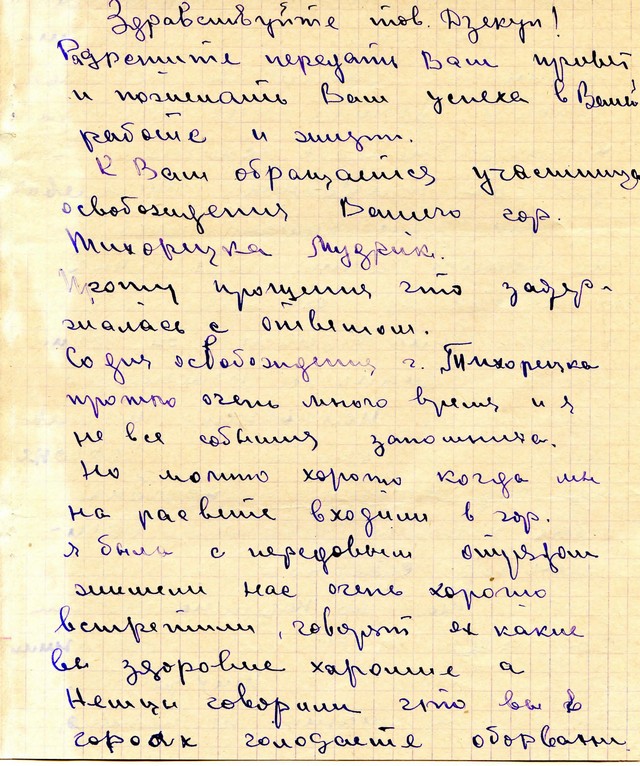 Здравствуйте тов. Дзекун!
Разрешите передать Вам привет
и пожелать Вам успеха в Вашей
работе и жизни.
К Вам обращается участница
освобождения Вашего гор.
Тихорецка Мудрик.
Прошу прощения что задер-
жалась с ответом.
Со дня освобождения г. Тихорецка
прошло очень много время и я
не все события запомнила.
Но помню хорошо когда мы
на расвете входили в гор.
я была с передовым отрядом
жители нас очень хорошо
встретили, говорят ох какие
вы здоровые харошие а
Немци говорили что вы в
городах голодаете оборваны